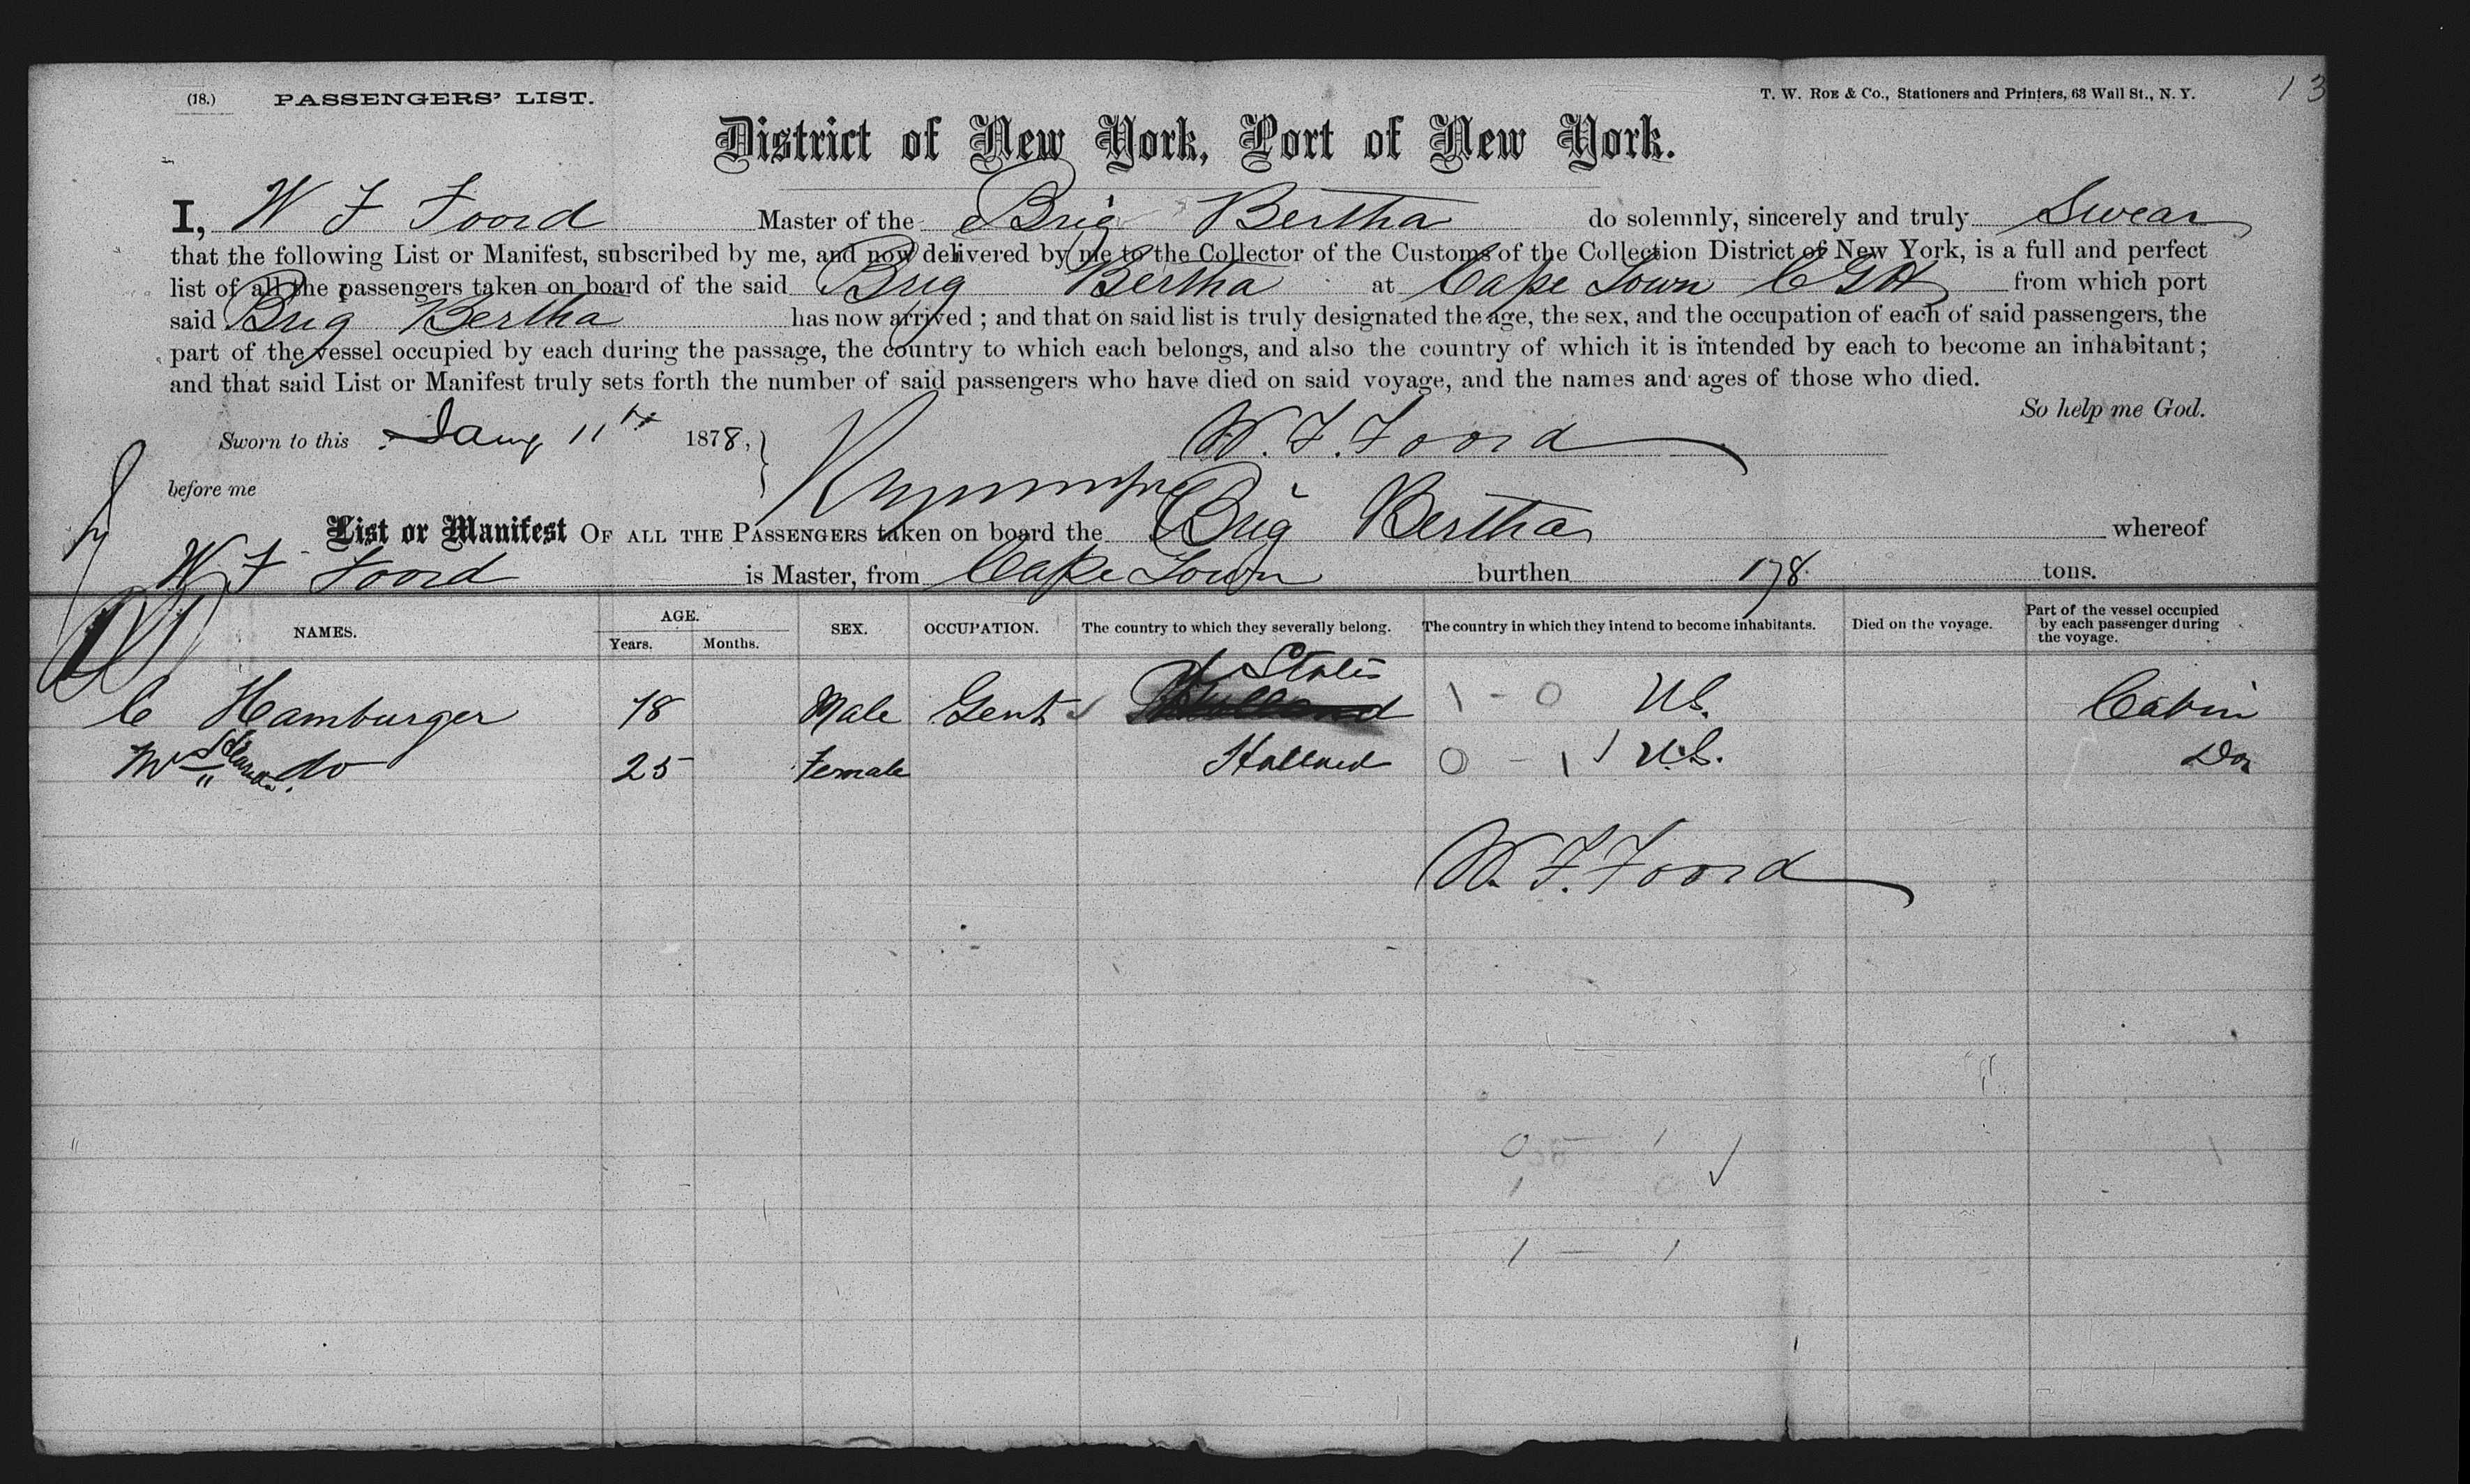 (18.) PASSENGERS' LIST. T. W. ROE & Co., Stationers and Printers, 63 Wall St., N. Y. 13
District of New York, Port of New York.
I, W F Foord Master of the Brig Bertha do solemnly, sincerely and truly Swear
that the following List or Manifest, subscribed by me, and now delivered by me to the Collector of the Customs of the Collection District of New York, is a full and perfect
list of all the passengers taken on board of the said Brig Bertha at Cape Town CGH from which port
said Brig Bertha has now arrived; and that on said list is truly designated the age, the sex, and the occupation of each of said passengers, the
part of the vessel occupied by each during the passage, the country to which each belongs, and also the country of which it is intended by each to become an inhabitant;
and that said List or Manifest truly sets forth the number of said passengers who have died on said voyage, and the names and ages of those who died.
So help me God.
Sworn to this Jany 11th 1878, W. F. Foord
before me
List or Manifest OF ALL THE PASSENGERS taken on board the Brig Bertha whereof
W F Foord is Master, from Cape Town burthen 178 tons.
NAMES. AGE. Years. Months. SEX. OCCUPATION. The country to which they severally belong. The country in which they intend to become inhabitants. Died on the voyage. Part of the vessel occupied by each passenger during the voyage.
C Hamburger 18 Male Gent States Holland 1 - 0 US. Cabin
Mrs do 25 Female Holland 0 - 1 U.S. Do
W. F. Foord
0 1
1 0 ✓
1 — 1